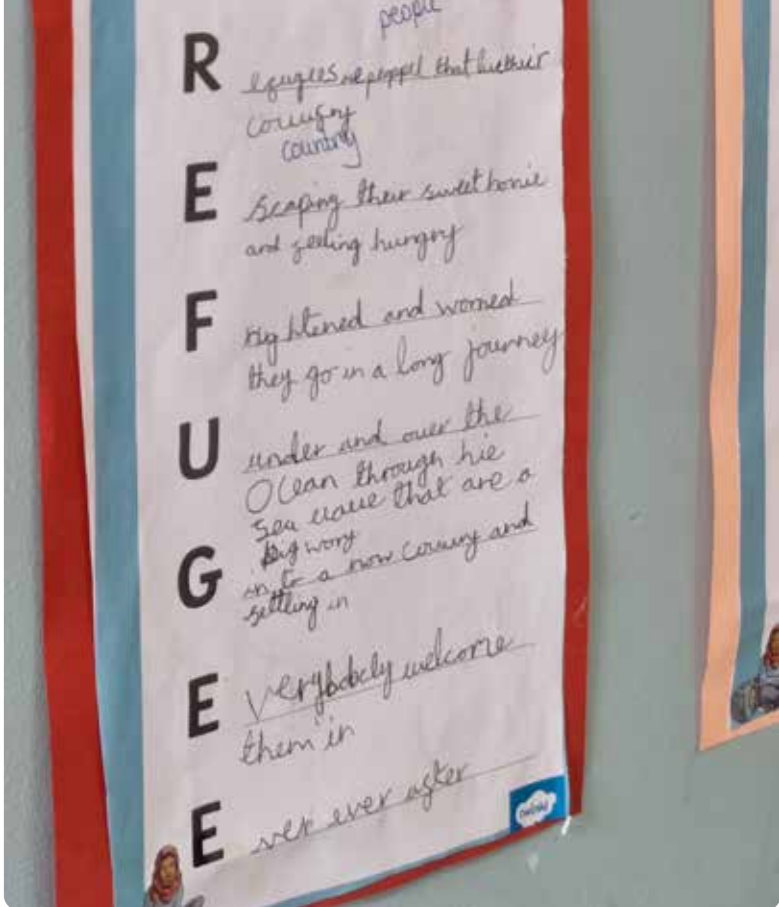 people
R efugees are peppel that lue their
counrey
country
E scaping their sweet home
and feeling hungry
F rightened and worried
they go in a long journey
U under and over the
Ocean through hie
sea wave that are a
big wory
G in to a now counrey and
settling in
E verybobely welcome
them in
E ver ever after
twinkl